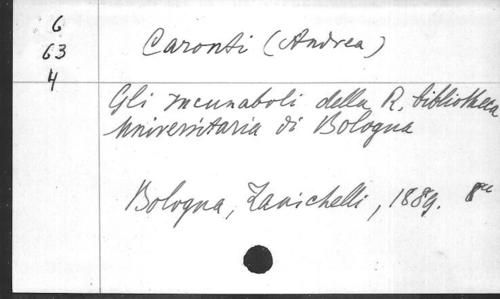 6
63
4
Caronti (Andrea)
Gli incunaboli della R. biblioteca
universitaria di Bologna
Bologna, Zanichelli, 1889. 8º